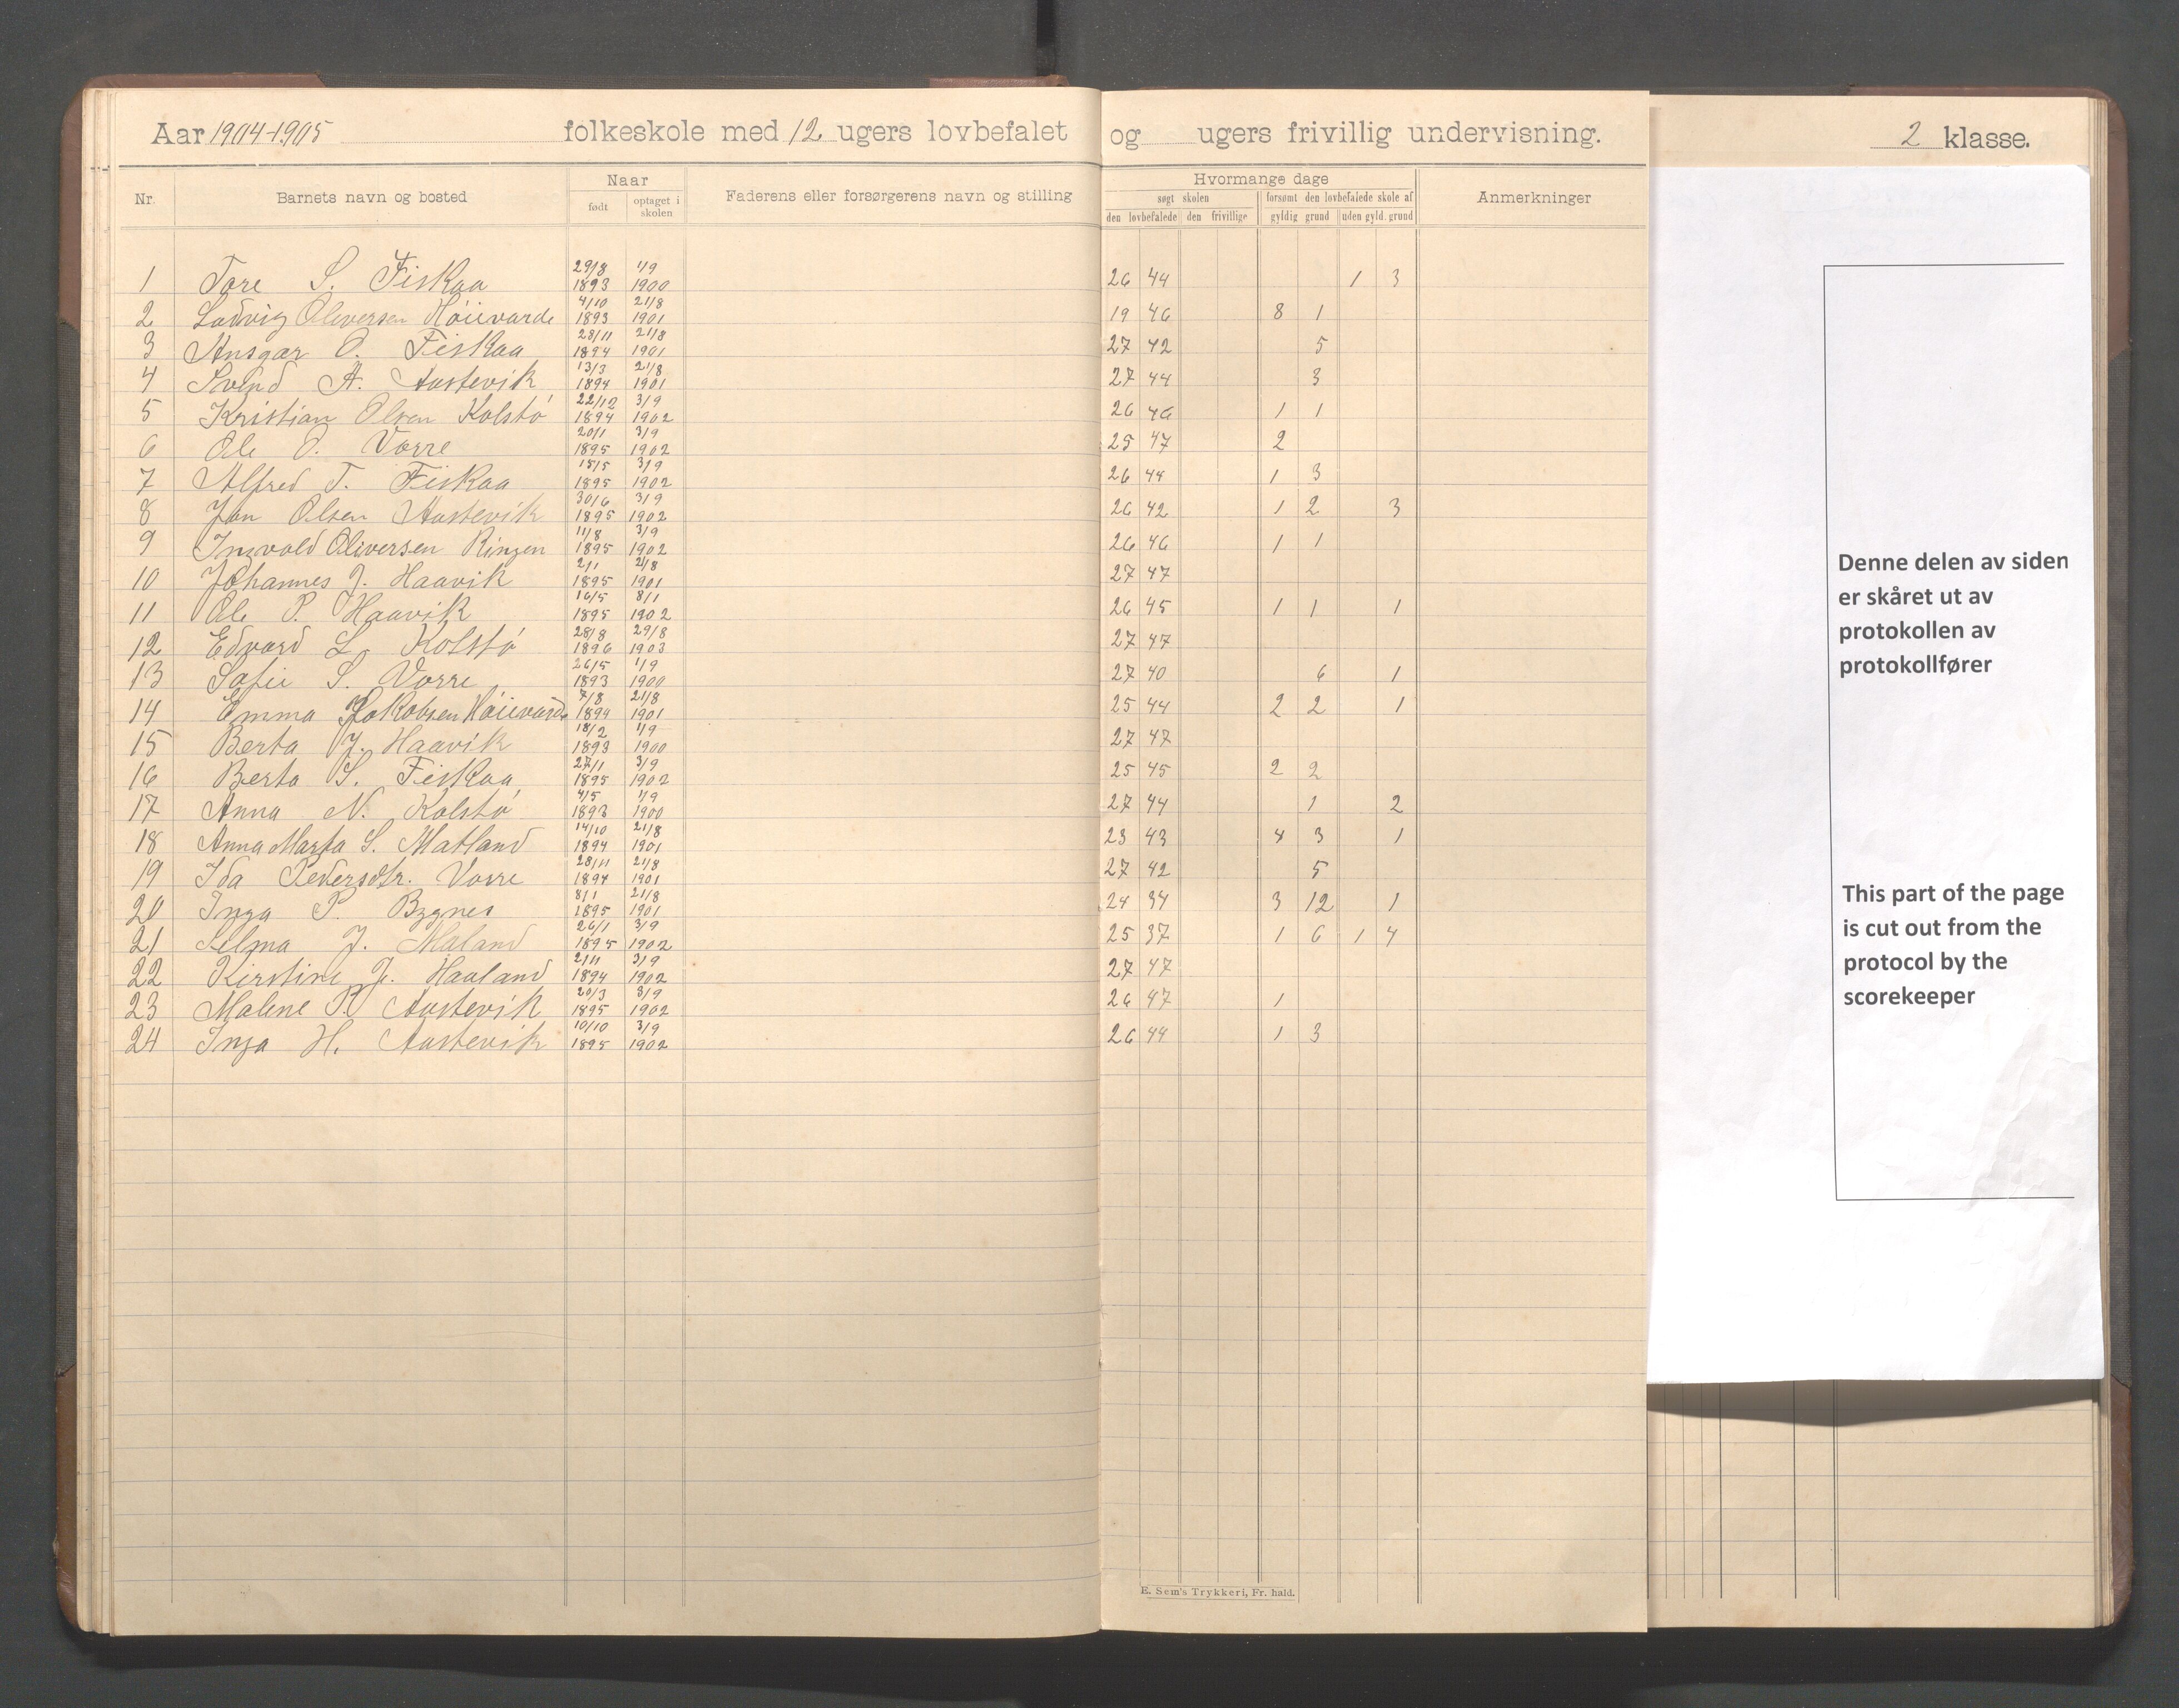 Aar 1904-1905 folkeskole med 12 ugers lovbefalet og ugers frivillig undervisning. 2 klasse.
Nr. Barnets navn og bosted Naar født optaget i skolen Faderens eller forsørgerens navn og stilling Hvormange dage søgt skolen den lovbefalede den frivillige forsømt den lovbefalede skole af gyldig grund uden gyld. grund Anmerkninger
1 Tore S. Fiskaa 29/8 1893 1/9 1900 26 44 1 3
2 Ludvig Oliversen Høievarde 4/10 1893 21/8 1901 19 46 8 1
3 Ansgar O. Fiskaa 28/11 1894 21/8 1901 27 42 5
4 Svend A. Austevik 13/3 1894 21/8 1901 27 44 3
5 Kristian Olsen Kolstø 22/12 1894 3/9 1902 26 46 1 1
6 Ole O. Vorre 20/1 1895 3/9 1902 25 47 2
7 Alfred T. Fiskaa 15/5 1895 3/9 1902 26 44 1 3
8 Jon Olsen Austevik 30/6 1895 3/9 1902 26 42 1 2 3
9 Ingvald Oliversen Ringen 11/8 1895 3/9 1902 26 46 1 1
10 Johannes J. Haavik 2/1 1895 21/8 1901 27 47
11 Ole P. Haavik 16/5 1895 8/1 1902 26 45 1 1 1
12 Edvard L. Kolstø 28/8 1896 29/8 1903 27 47
13 Sofie S. Vorre 26/5 1893 1/9 1900 27 40 6 1
14 Emma Jakobsen Høievarde 7/8 1894 21/8 1901 25 44 2 2 1
15 Berta J. Haavik 18/2 1893 1/9 1900 27 47
16 Berta S. Fiskaa 27/1 1895 3/9 1902 25 45 2 2
17 Anna N. Kolstø 4/5 1893 1/9 1900 27 44 1 2
18 Anna Marta S. Matland 14/10 1894 21/8 1901 23 43 4 3 1
19 Ida Pedersdtr. Vorre 28/11 1894 21/8 1901 27 42 5
20 Inga P. Bygnes 8/1 1895 21/8 1901 24 34 3 12 1
21 Selma J. Maland 26/1 1895 3/9 1902 25 37 1 6 1 4
22 Kirstine J. Haaland 2/11 1894 3/9 1902 27 47
23 Malene P. Austevik 20/3 1895 3/9 1902 26 47 1
24 Inga H. Austevik 10/10 1895 3/9 1902 26 44 1 3
E. Sem's Trykkeri, Fr. hald.
Denne delen av siden
er skåret ut av
protokollen av
protokollfører
This part of the page
is cut out from the
protocol by the
scorekeeper